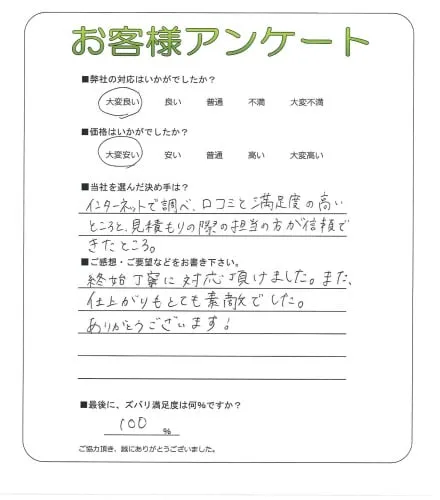 お客様アンケート
■弊社の対応はいかがでしたか?
大変良い 良い 普通 不満 大変不満
■価格はいかがでしたか?
大変安い 安い 普通 高い 大変高い
■当社を選んだ決め手は?
インターネットで調べ、口コミと満足度の高い
ところと、見積もりの際の担当の方が信頼で
きたところ。
■ご感想・ご要望などをお書き下さい。
終始丁寧に対応頂けました。また、
仕上がりもとても素敵でした。
ありがとうございます!
■最後に、ズバリ満足度は何%ですか?
100 %
ご協力頂き、誠にありがとうございました。